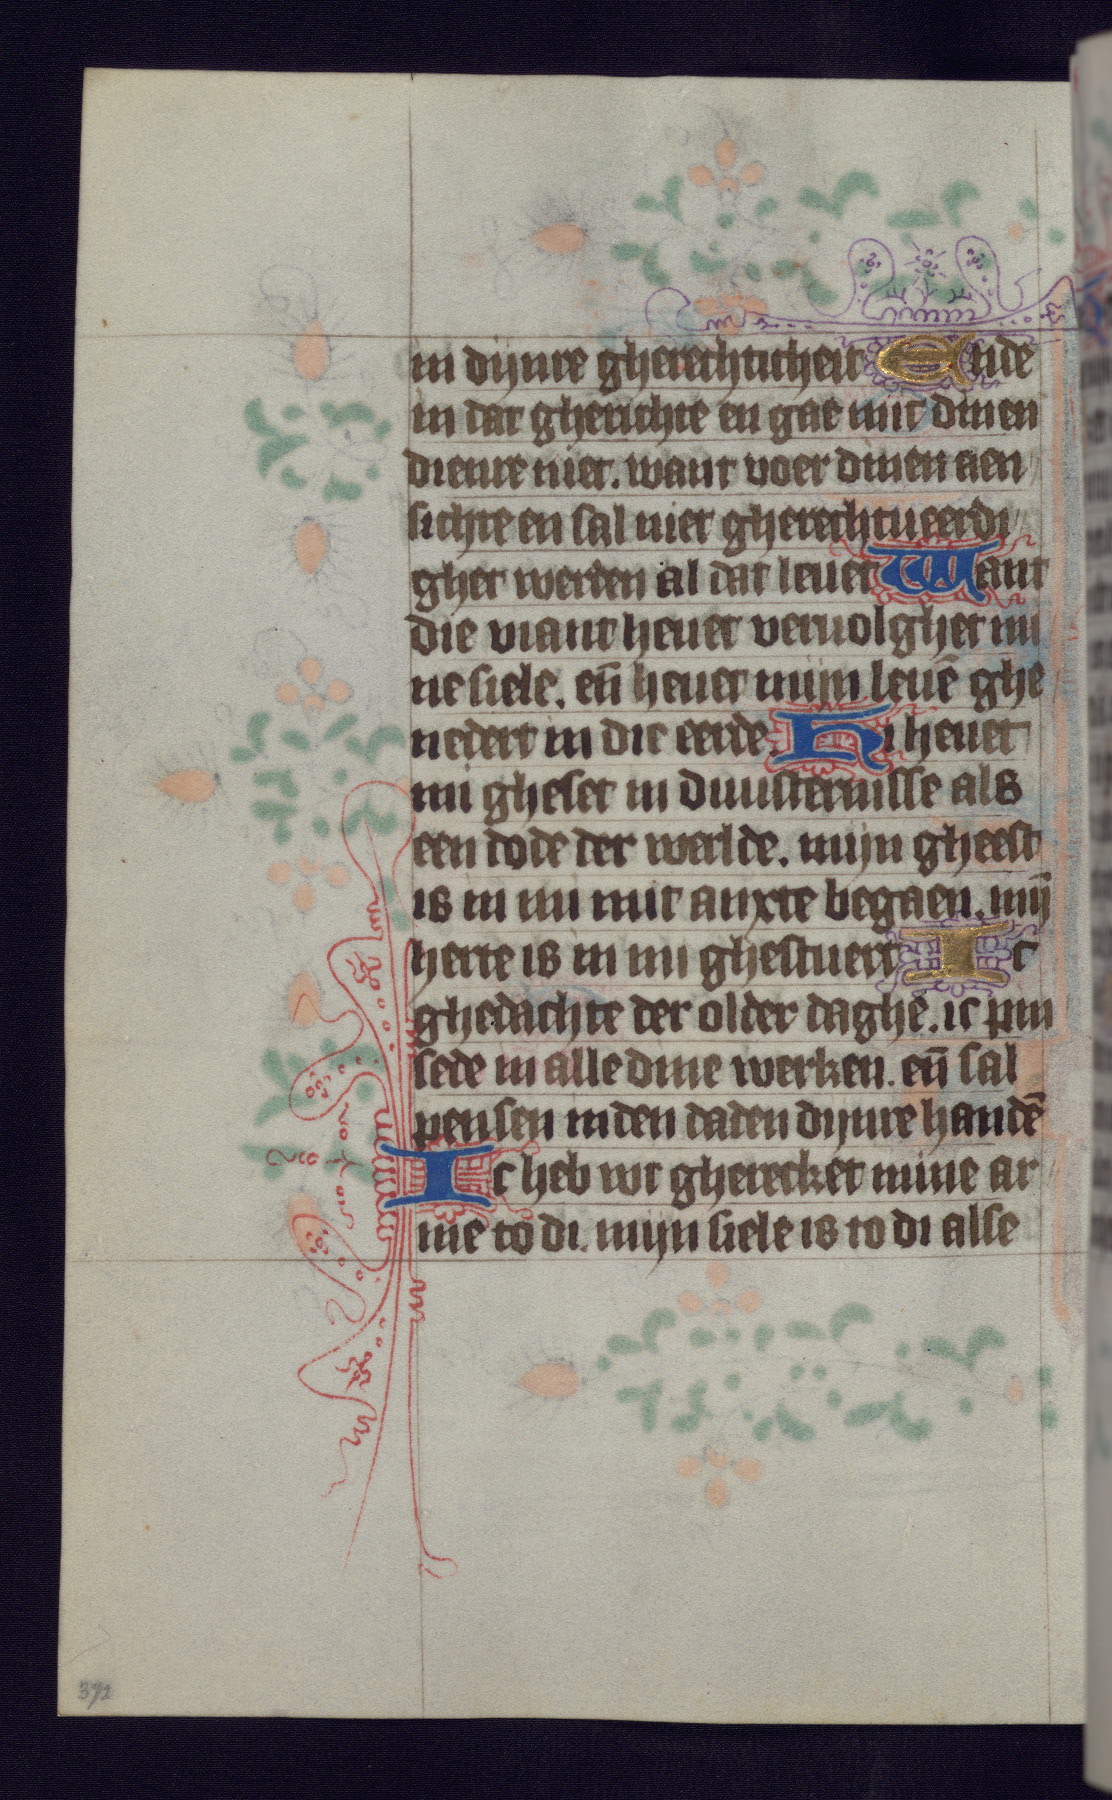 in dijnre gherechticheit Ende
in dat gherichte en gae mit dinen
dienre niet. want voer dinen aen
sichte en sal niet gherechtueerdi
ghet werden al dat leuet Want
die viant heuet veruolghet mi
ne siele. en̄ heuet mijn leuē ghe
nedert in die eerde. Hi heuet
mi gheset in duusternisse als
een dode der werlde. mijn gheest
is in mi mit anxte begaen. mij̄
herte is in mi ghestuert Ic
ghedachte der older daghē. ic pin
sede in alle dine werken. en̄ sal
pensen inden daden dijnre handē
Ic heb wt gherecket mine ar
me to di. mijn siele is to di alse
392